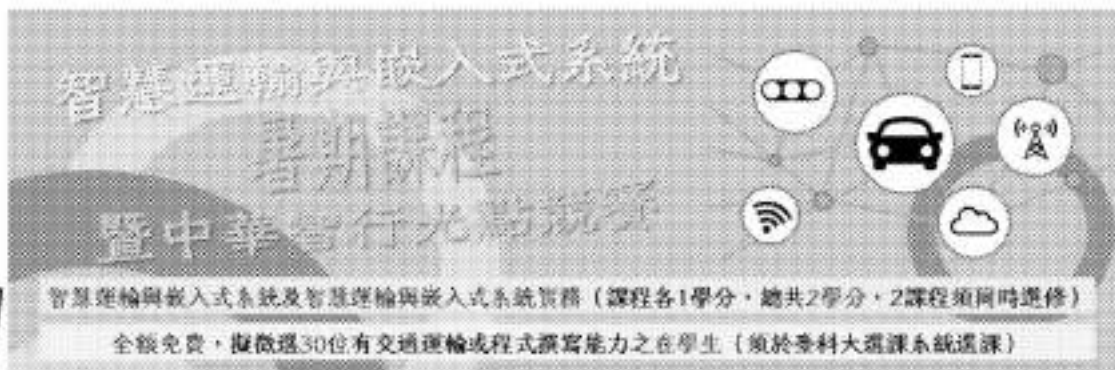 智慧運輸與嵌入式系統
暑期課程
暨中華智行光點競賽
智慧運輸與嵌入式系統及智慧運輸與嵌入式系統實務（課程各1學分，總共2學分，2課程須同時選修）
全額免費，擬徵選30位有交通運輸或程式撰寫能力之在學生（須於臺科大選課系統選課）